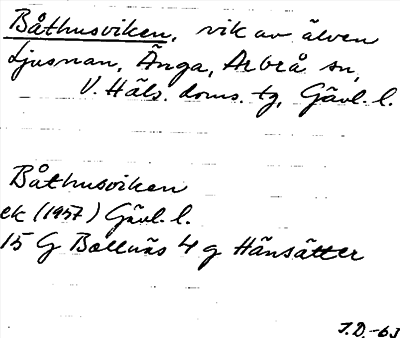 Båthusviken, vik av älven
Ljusnan, Änga, Arbrå sn,
V. Häls. doms. tg, Gävl. l.
Båthusviken
ek (1957) Gävl. l.
15 G Bollnäs 4 g Hänsätter
J.D. -63